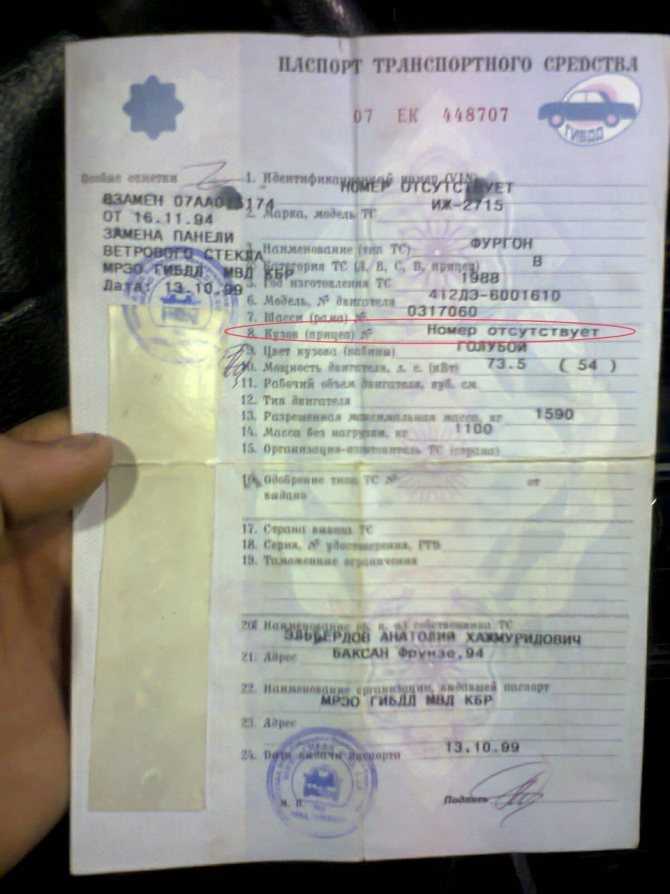 ПАСПОРТ ТРАНСПОРТНОГО СРЕДСТВА
07 ЕК 448707
ГИБДД
Особые отметки
ВЗАМЕН 07АА015174
ОТ 16.11.94
ЗАМЕНА ПАНЕЛИ
ВЕТРОВОГО СТЕКЛА
МРЭО ГИБДД МВД КБР
Дата: 13.10.99
1. Идентификационный номер (VIN)
НОМЕР ОТСУТСТВУЕТ
2. Марка, модель ТС ИЖ-2715
3. Наименование (тип ТС) ФУРГОН
Категория ТС (А, В, С, D, прицеп) В
5. Год изготовления ТС 1988
6. Модель, № двигателя 412ДЭ-6001610
7. Шасси (рама) № 0317060
8. Кузов (прицеп) № Номер отсутствует
9. Цвет кузова (кабины) ГОЛУБОЙ
10. Мощность двигателя, л. с. (кВт) 73.5 ( 54 )
11. Рабочий объем двигателя, куб. см
12. Тип двигателя
13. Разрешенная максимальная масса, кг 1590
14. Масса без нагрузки, кг 1100
15. Организация-изготовитель ТС (страна)
16. Одобрение типа ТС № от
выдано
17. Страна вывоза ТС
18. Серия, № удостоверения, ГТД
19. Таможенные ограничения
20. Наименование (ф. и. о.) собственника ТС
ЭЛЬБЕРДОВ АНАТОЛИЙ ХАЖМУРИДОВИЧ
21. Адрес БАКСАН Фрунзе,94
22. Наименование организации, выдавшей паспорт
МРЭО ГИБДД МВД КБР
23. Адрес
24. Дата выдачи паспорта 13.10.99
М. П.
Подпись